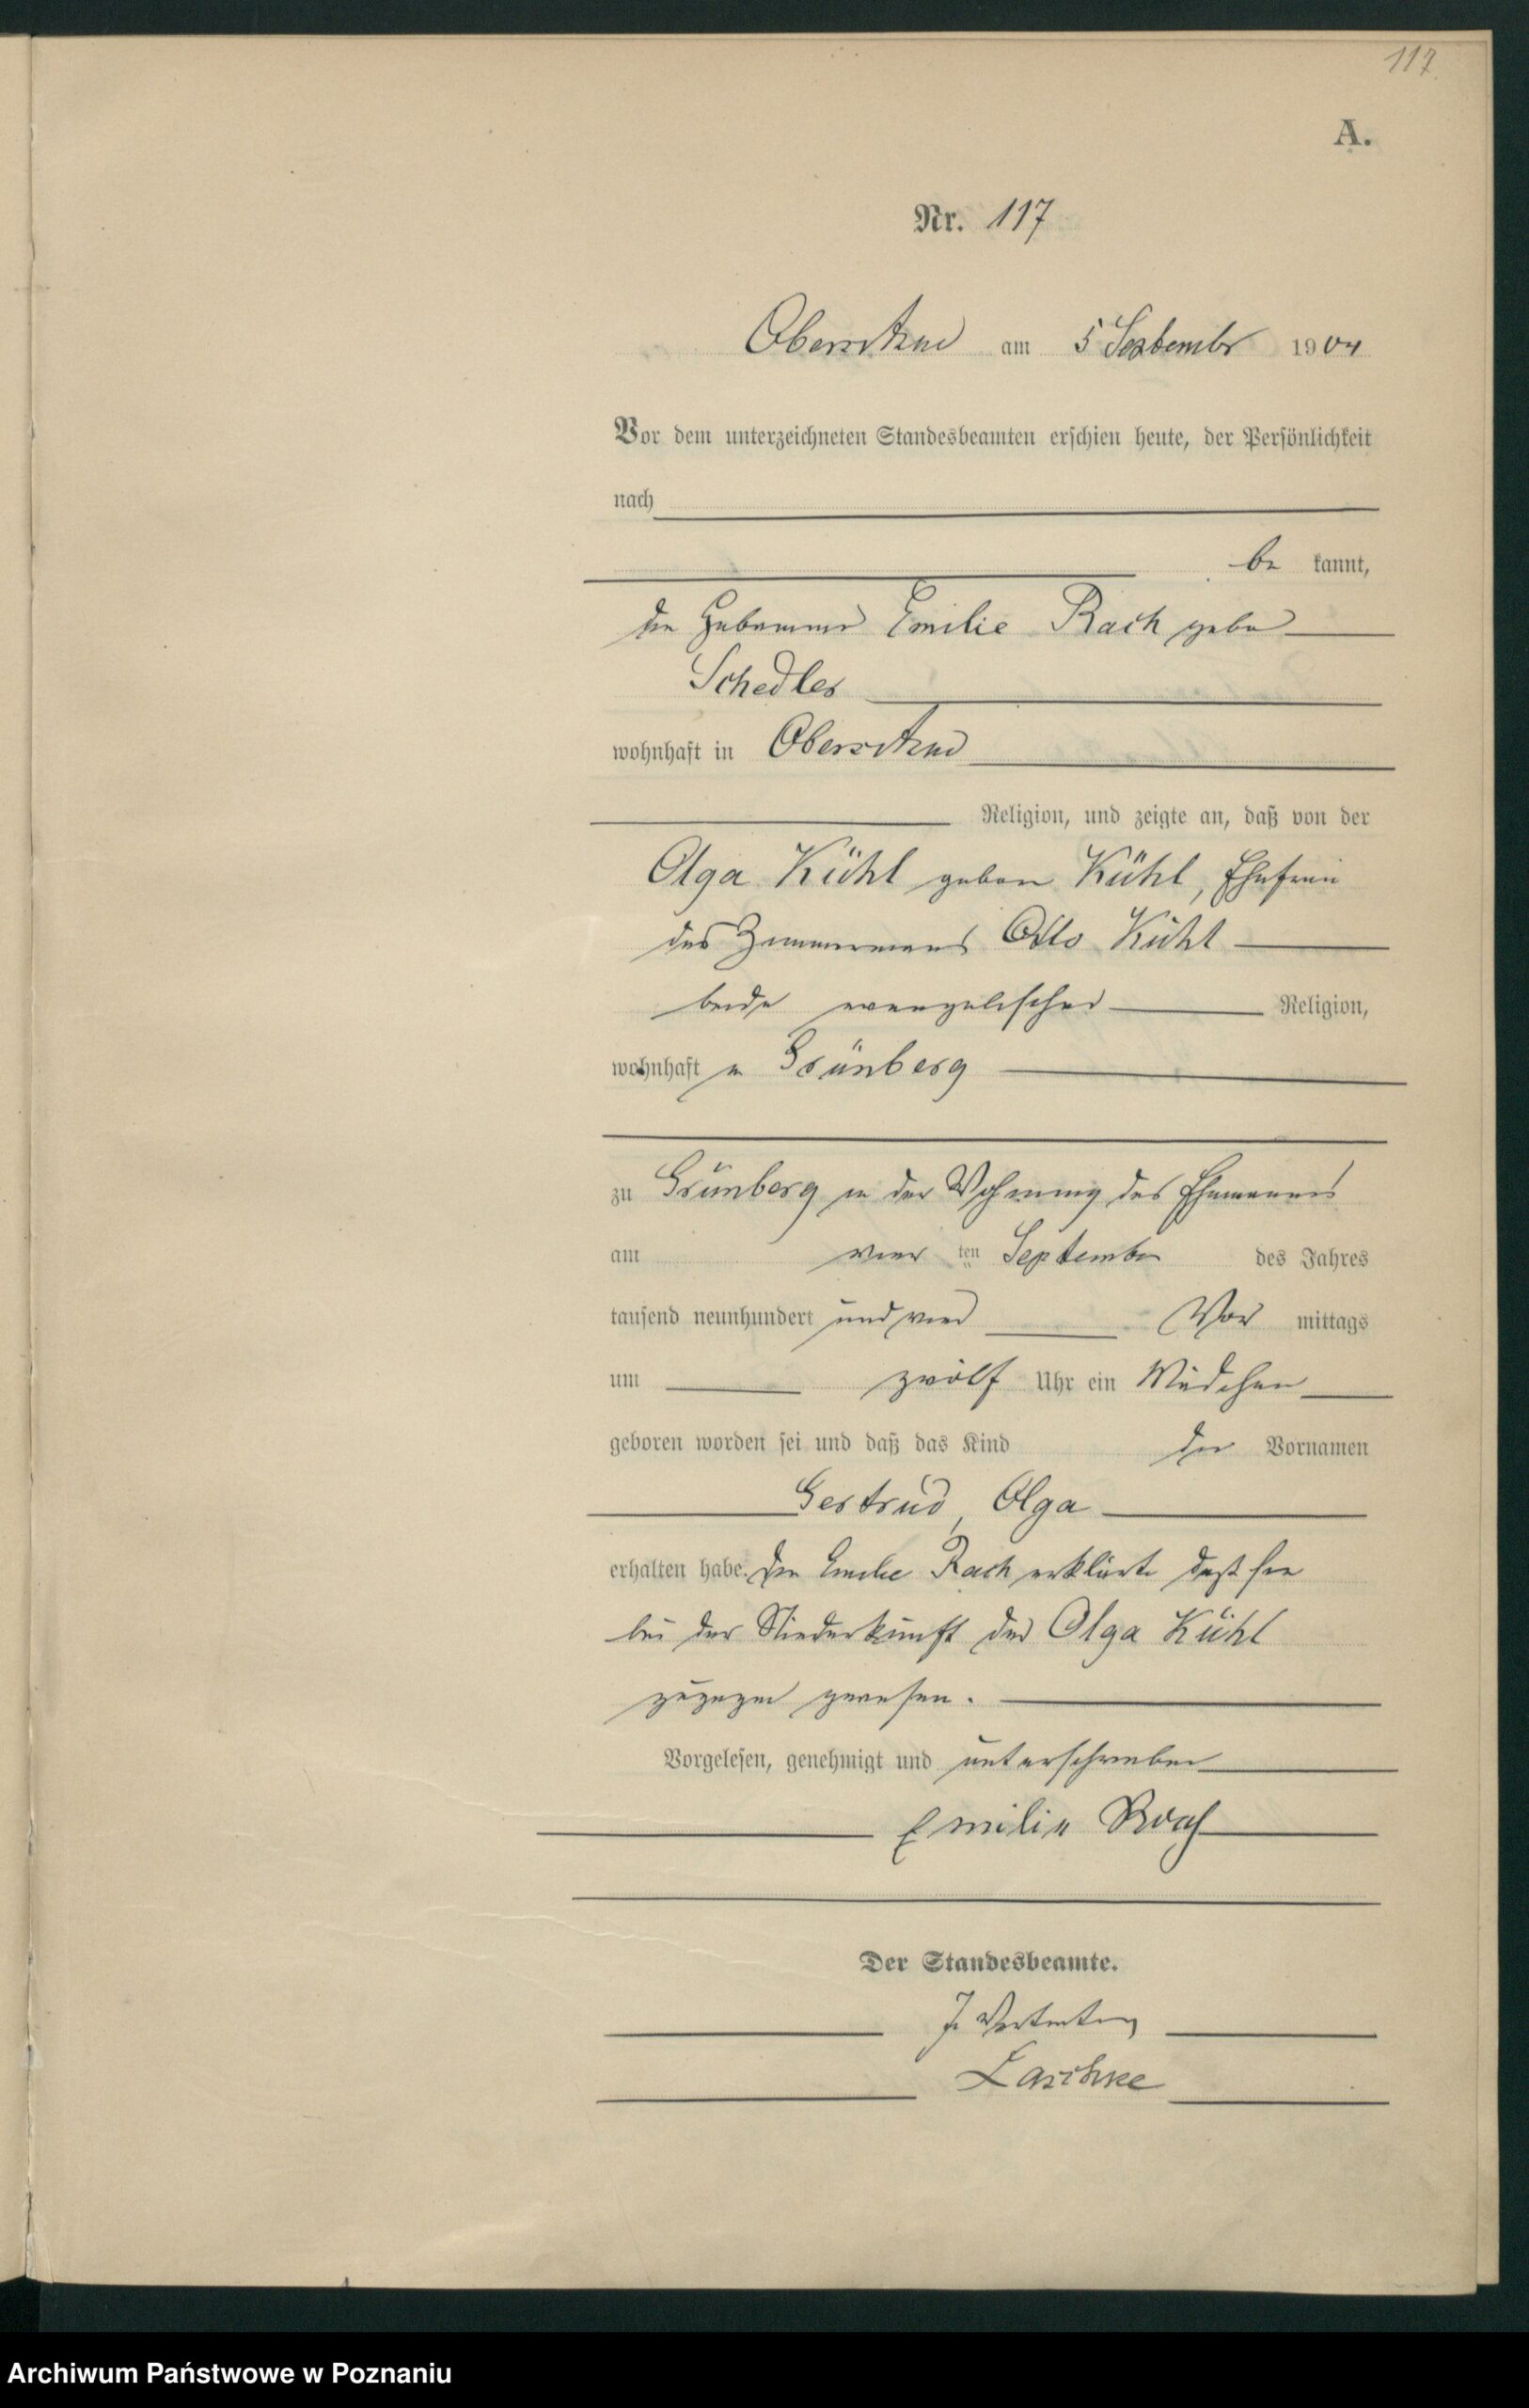 117
A.
Nr. 117
Obersitzko am 5 September 1904
Vor dem unterzeichneten Standesbeamten erschien heute, der Persönlichkeit
nach
be kannt,
die Hebamme Emilie Rach gebor
Schedler
wohnhaft in Obersitzko
Religion, und zeigte an, daß von der
Olga Kühl geboren Kühl, Ehefrau
des Zimmermanns Otto Kühl
beide evangelischer Religion,
wohnhaft in Grünberg
zu Grünberg in der Wohnung des Ehemannes
am vier ten September des Jahres
tausend neunhundert und vier Vor mittags
um zwölf Uhr ein Mädchen
geboren worden sei und daß das Kind die Vornamen
Gertrud, Olga
erhalten habe. Die Emilie Rach erklärte daß sie
bei der Niederkunft der Olga Kühl
zugegen gewesen.
Vorgelesen, genehmigt und unterschrieben
Emilie Rach
Der Standesbeamte.
In Vertretung
Laschke
Archiwum Państwowe w Poznaniu